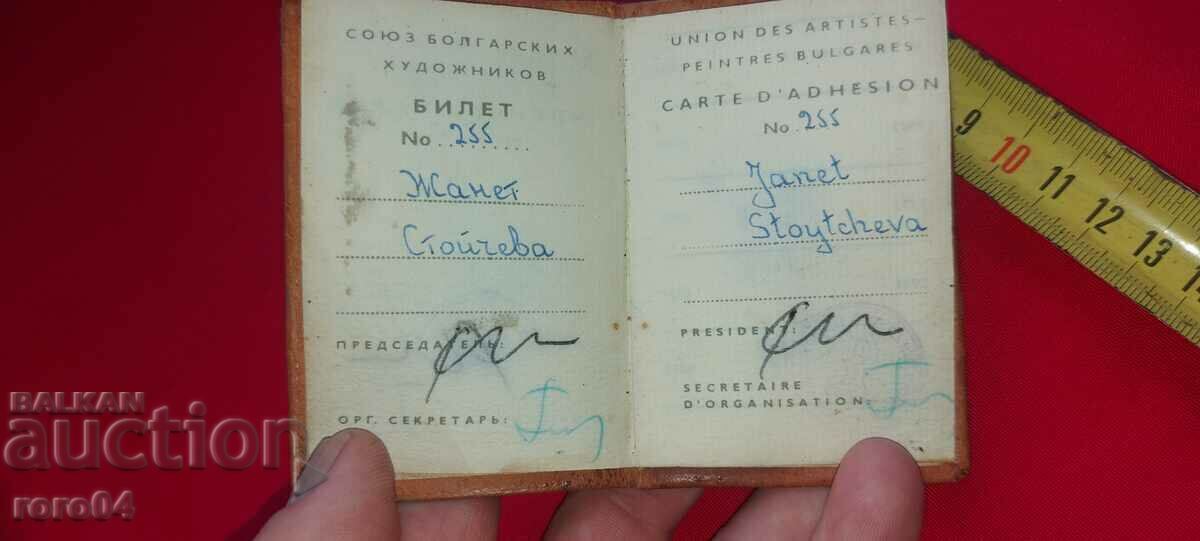 СОЮЗ БОЛГАРСКИХ
ХУДОЖНИКОВ
БИЛЕТ
No. 255
Жанет
Стойчева
ПРЕДСЕДАТЕЛЬ:
ОРГ. СЕКРЕТАРЬ:
UNION DES ARTISTES-
PEINTRES BULGARES
CARTE D'ADHESION
No. 255
Janet
Stoytcheva
PRESIDENT:
SECRETAIRE
D'ORGANISATION:
9 10 11 12 13
BALKAN
auction
roro04